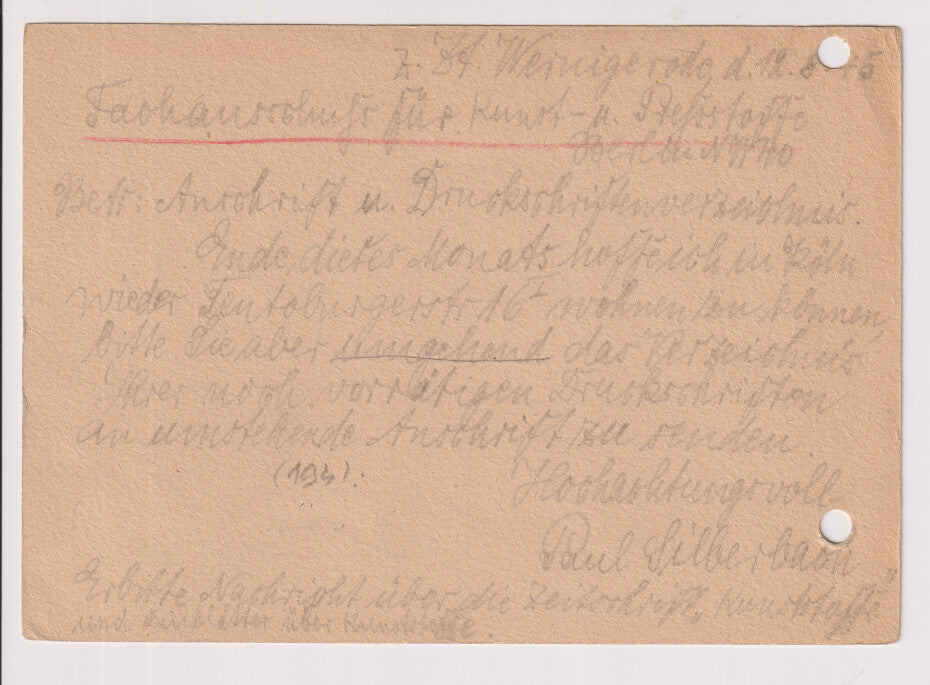 z. Zt. Wernigerode, d. 12. 8. 45
Fachausschuss für Kunst- u. Pressstoffe
Berlin NW 40
Betr: Anschrift u. Druckschriftenverzeichnis.
Ende dieses Monats hoffe ich in Köln
wieder Teutoburgerstr 16 wohnen zu können,
bitte Sie aber umgehend das Verzeichnis
Ihrer noch vorrätigen Druckschriften
an umstehende Anschrift zu senden.
Hochachtungsvoll
Paul Silberbach
Erbitte Nachricht über die Zeitschrift „Kunststoffe"
und über Kunststoffe.